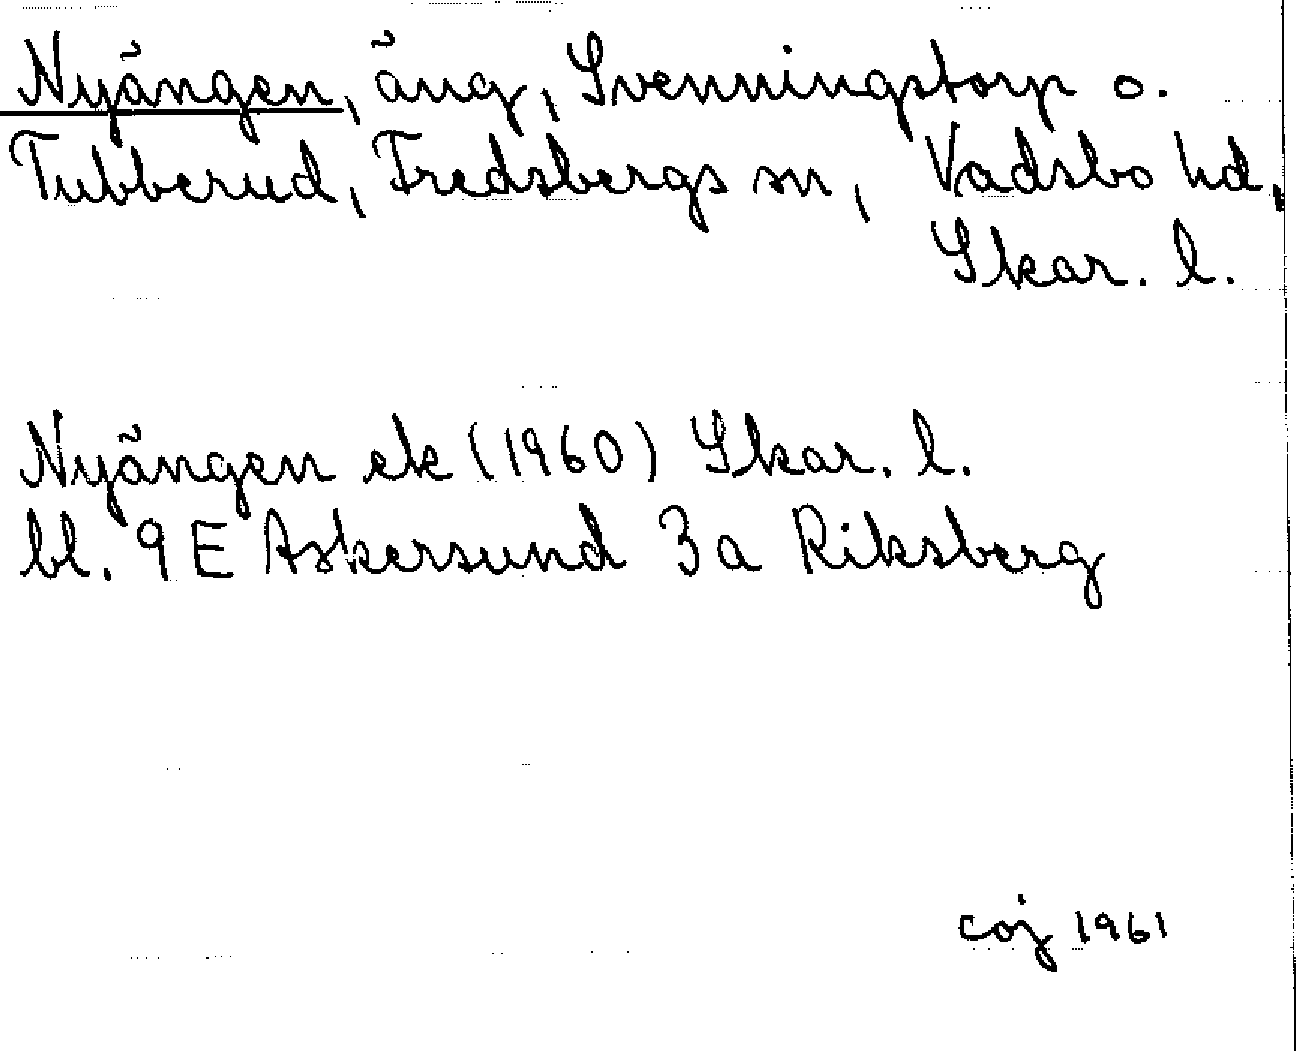 Nyängen, äng, Svenningstorp o.
Tubberud, Fredsbergs sn, Vadsbo hd,
Skar. l.
Nyängen ek (1960) Skar. l.
bl. 9E Askersund 3a Riksberg
coj 1961